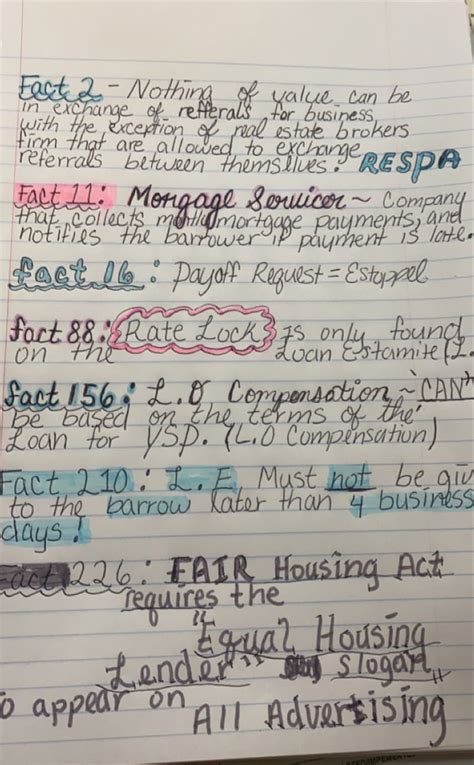 Fact 2 - Nothing of value can be
in exchange of refferals for business,
with the exception of real estate brokers
firm that are allowed to exchange
referrals between themselves. RESPA
Fact 11: Morgage Servicor ~ Company
that collects mortgage payments, and
notifies the barrower if payment is late.
fact 16: Payoff Request = Estoppel
fact 88: Rate Lock Is only found
on the Loan Estamite (L.
fact 156: L.O, Compensation ~ CAN'
be based on the terms of the
Loan for YSP. (L.O Compensation)
Fact 210: L.E, Must not be giv
to the barrow later than 4 business
days!
Fact 226: FAIR Housing Act
requires the
"Equal Housing
Lender" slogan,,
to appear on
All Advertising